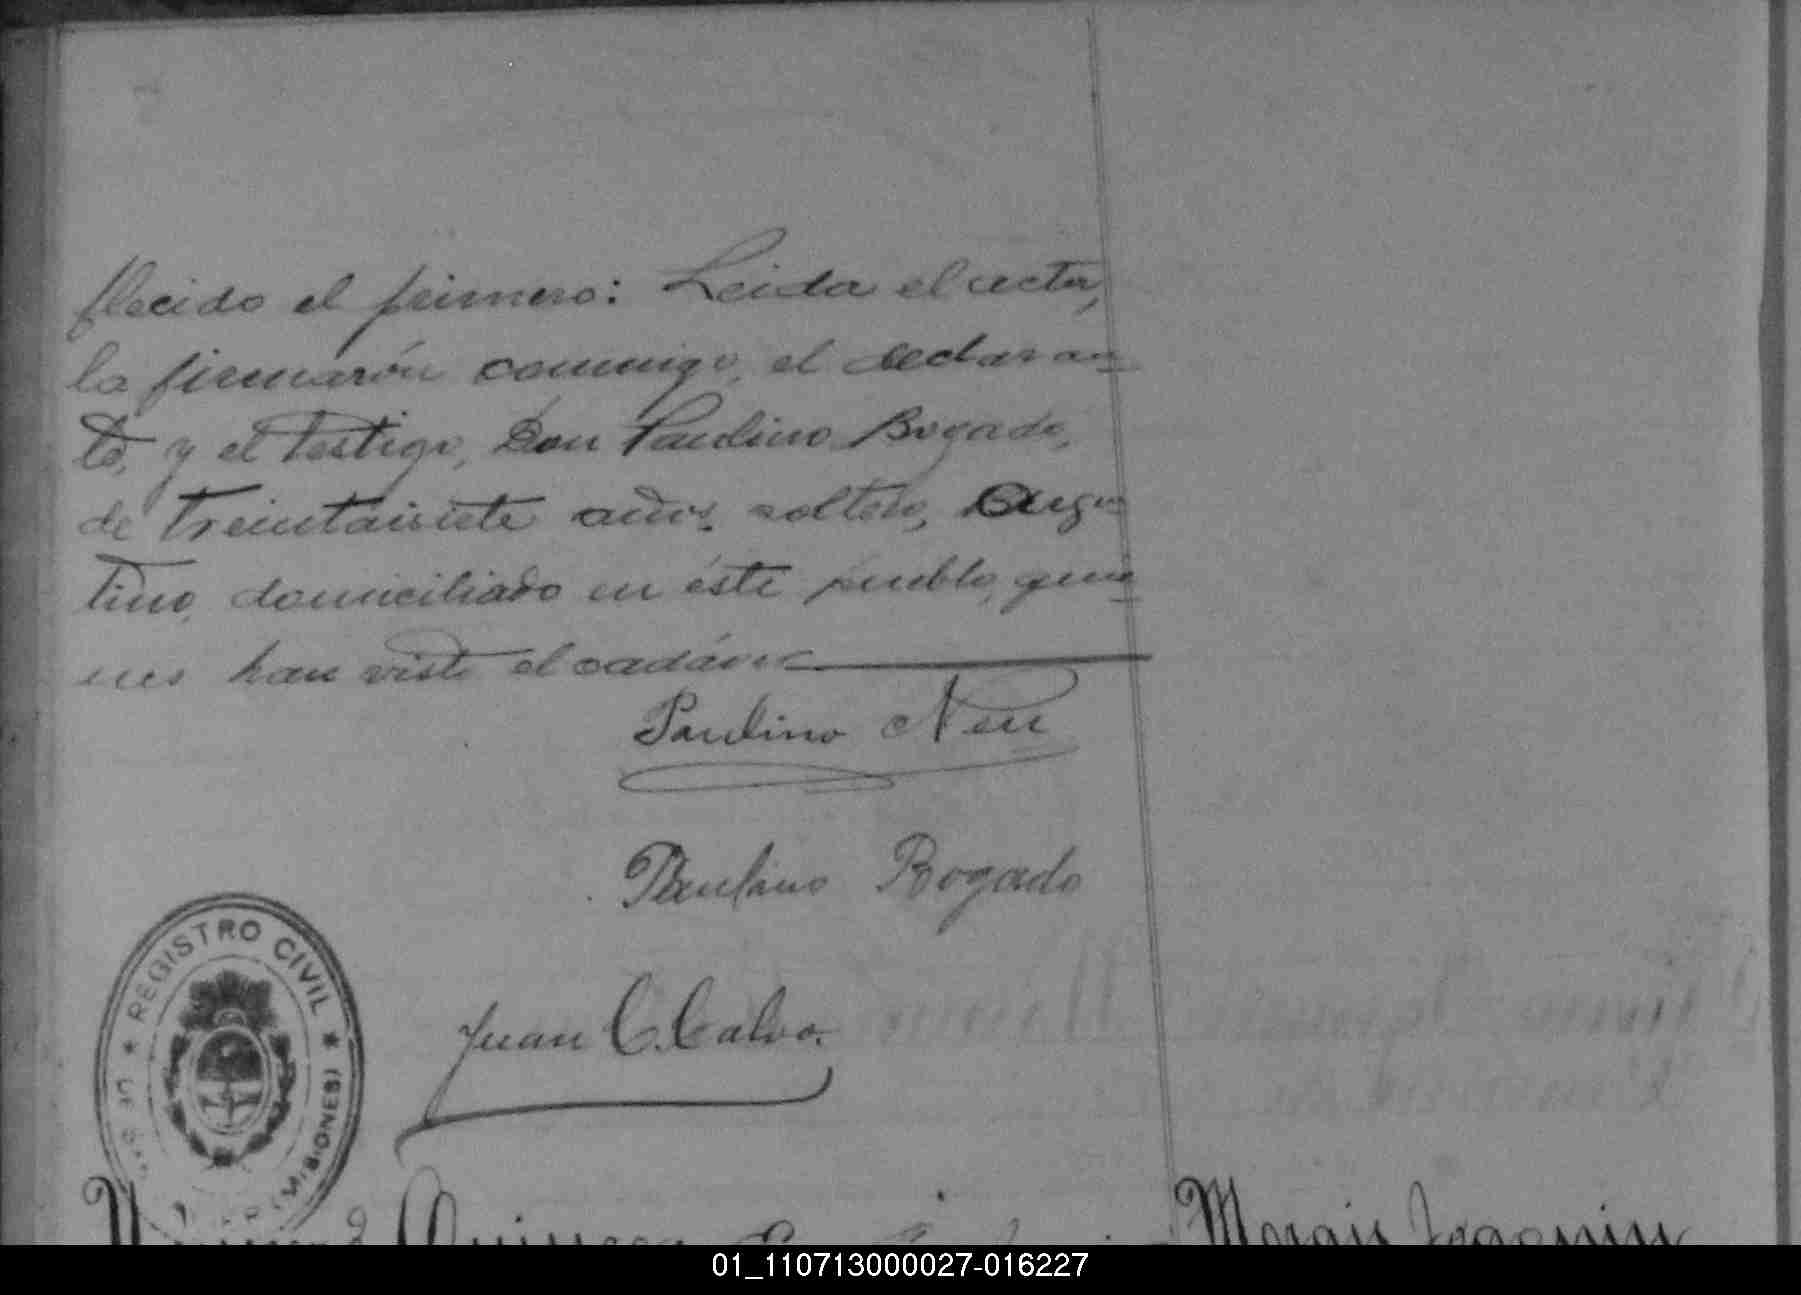 flecido el primero: Leida el acta,
la firmarón conmigo, el declaran-
te, y el testigo, Don Paulino Bogado,
de treintaisiete años, soltero, Argen
tino, domiciliado en éste pueblo, quie-
nes han visto el cadáver
Paulino Neu
Paulino Bogado
Juan C. Calvo.
★ REGISTRO CIVIL ★
(MISIONES)
Número Quince
Morais Joaquin
01_110713000027-016227